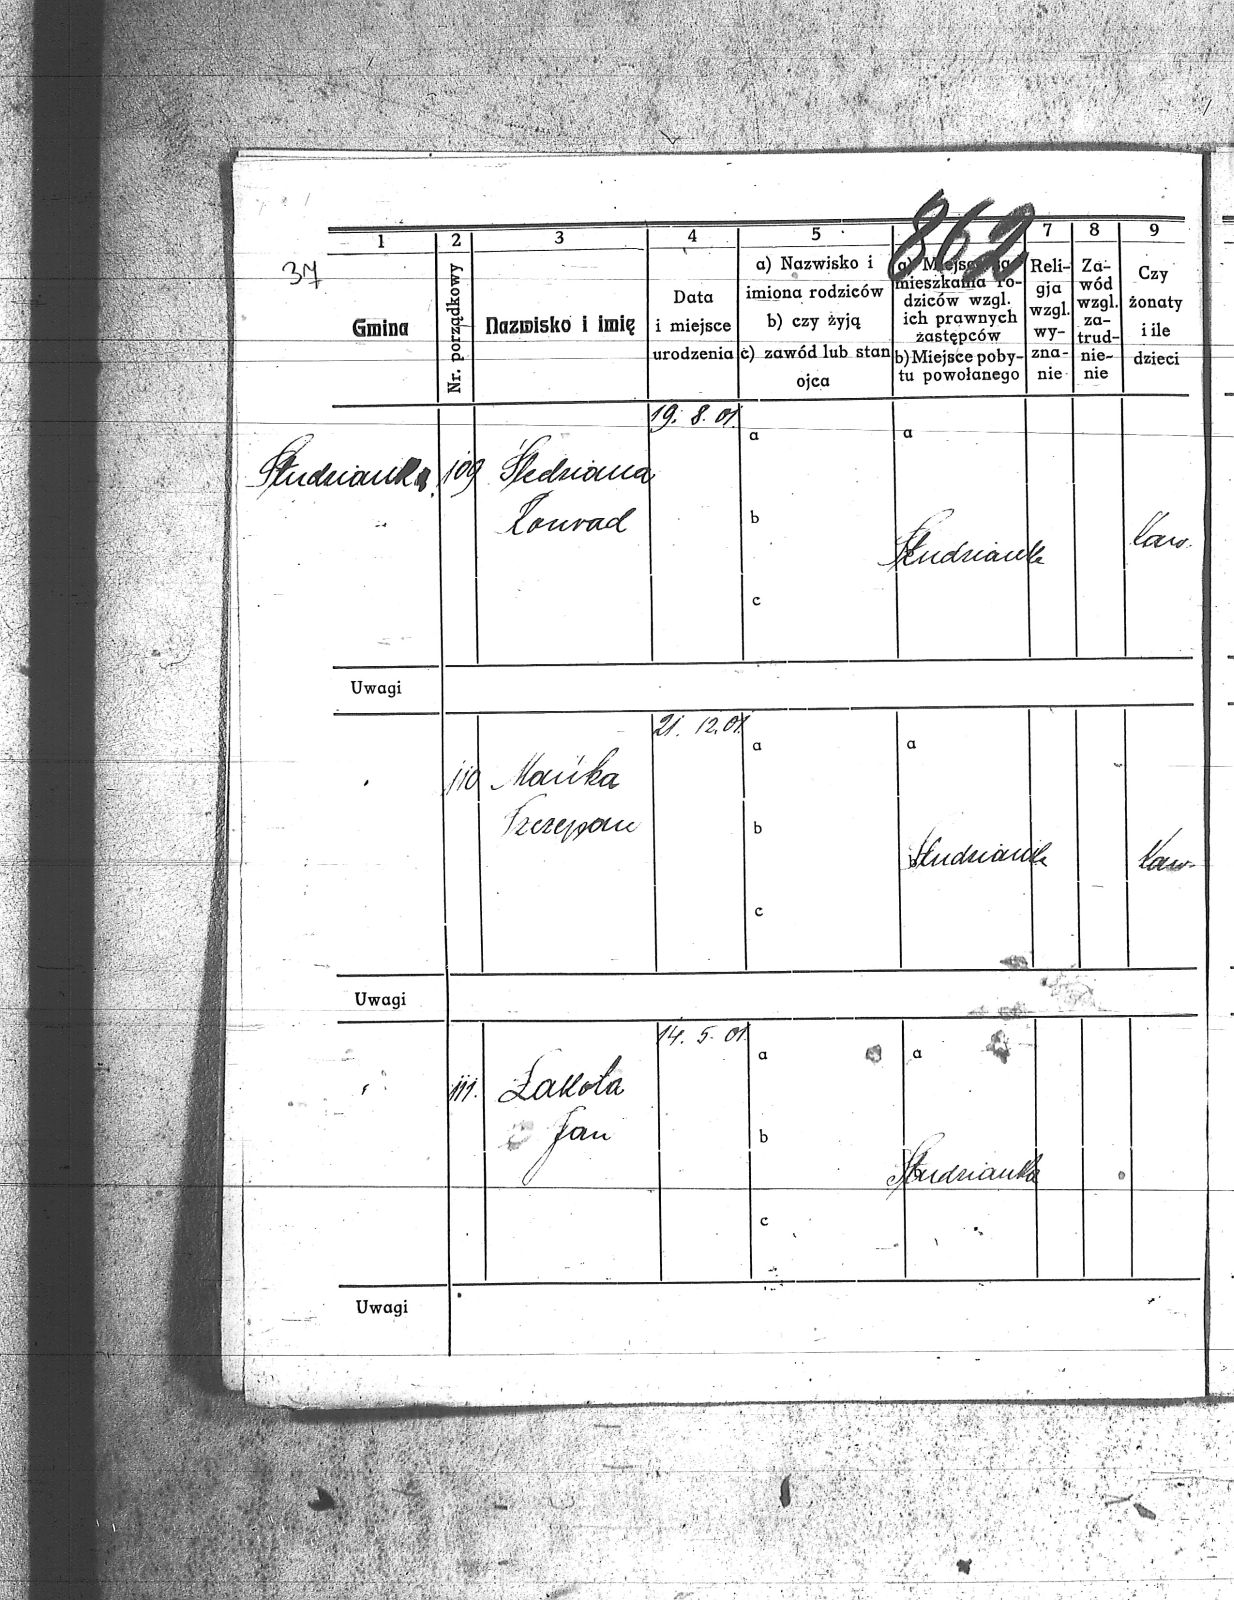 862
37
1 2 3 4 5 7 8 9
Gmina
Nr. porządkowy
Nazwisko i imię
Data
i miejsce
urodzenia
a) Nazwisko i
imiona rodziców
b) czy żyją
c) zawód lub stan
ojca
a) Miejsce
mieszkania ro-
dziców wzgl.
ich prawnych
zastępców
b) Miejsce poby-
tu powołanego
Reli-
gja
wzgl.
wy-
zna-
nie
Za-
wód
wzgl.
za-
trud-
nie-
nie
Czy
żonaty
i ile
dzieci
19. 8. 01.
a a
Studzianka 109 Śledziana
Konrad
b
Studzianka Kaw.
c
Uwagi
21. 12. 01.
a a
110 Mańka
Szczepan
b
Studzianka Kaw.
c
Uwagi
14. 5. 01.
a a
111. Łakota
Jan
b
Studzianka
c
Uwagi